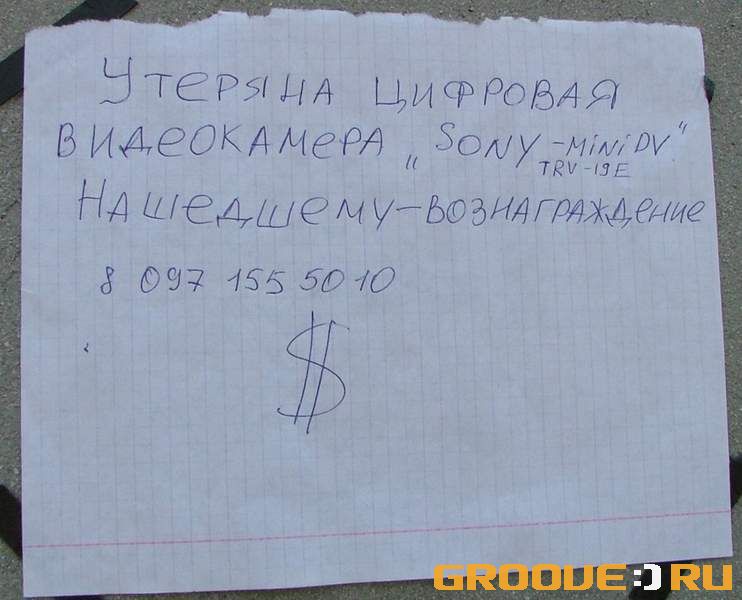 Утеряна цифровая
видеокамера „Sony-miniDV“
TRV-19E
Нашедшему–вознаграждение
8 097 155 50 10
$
GROOVE:)RU